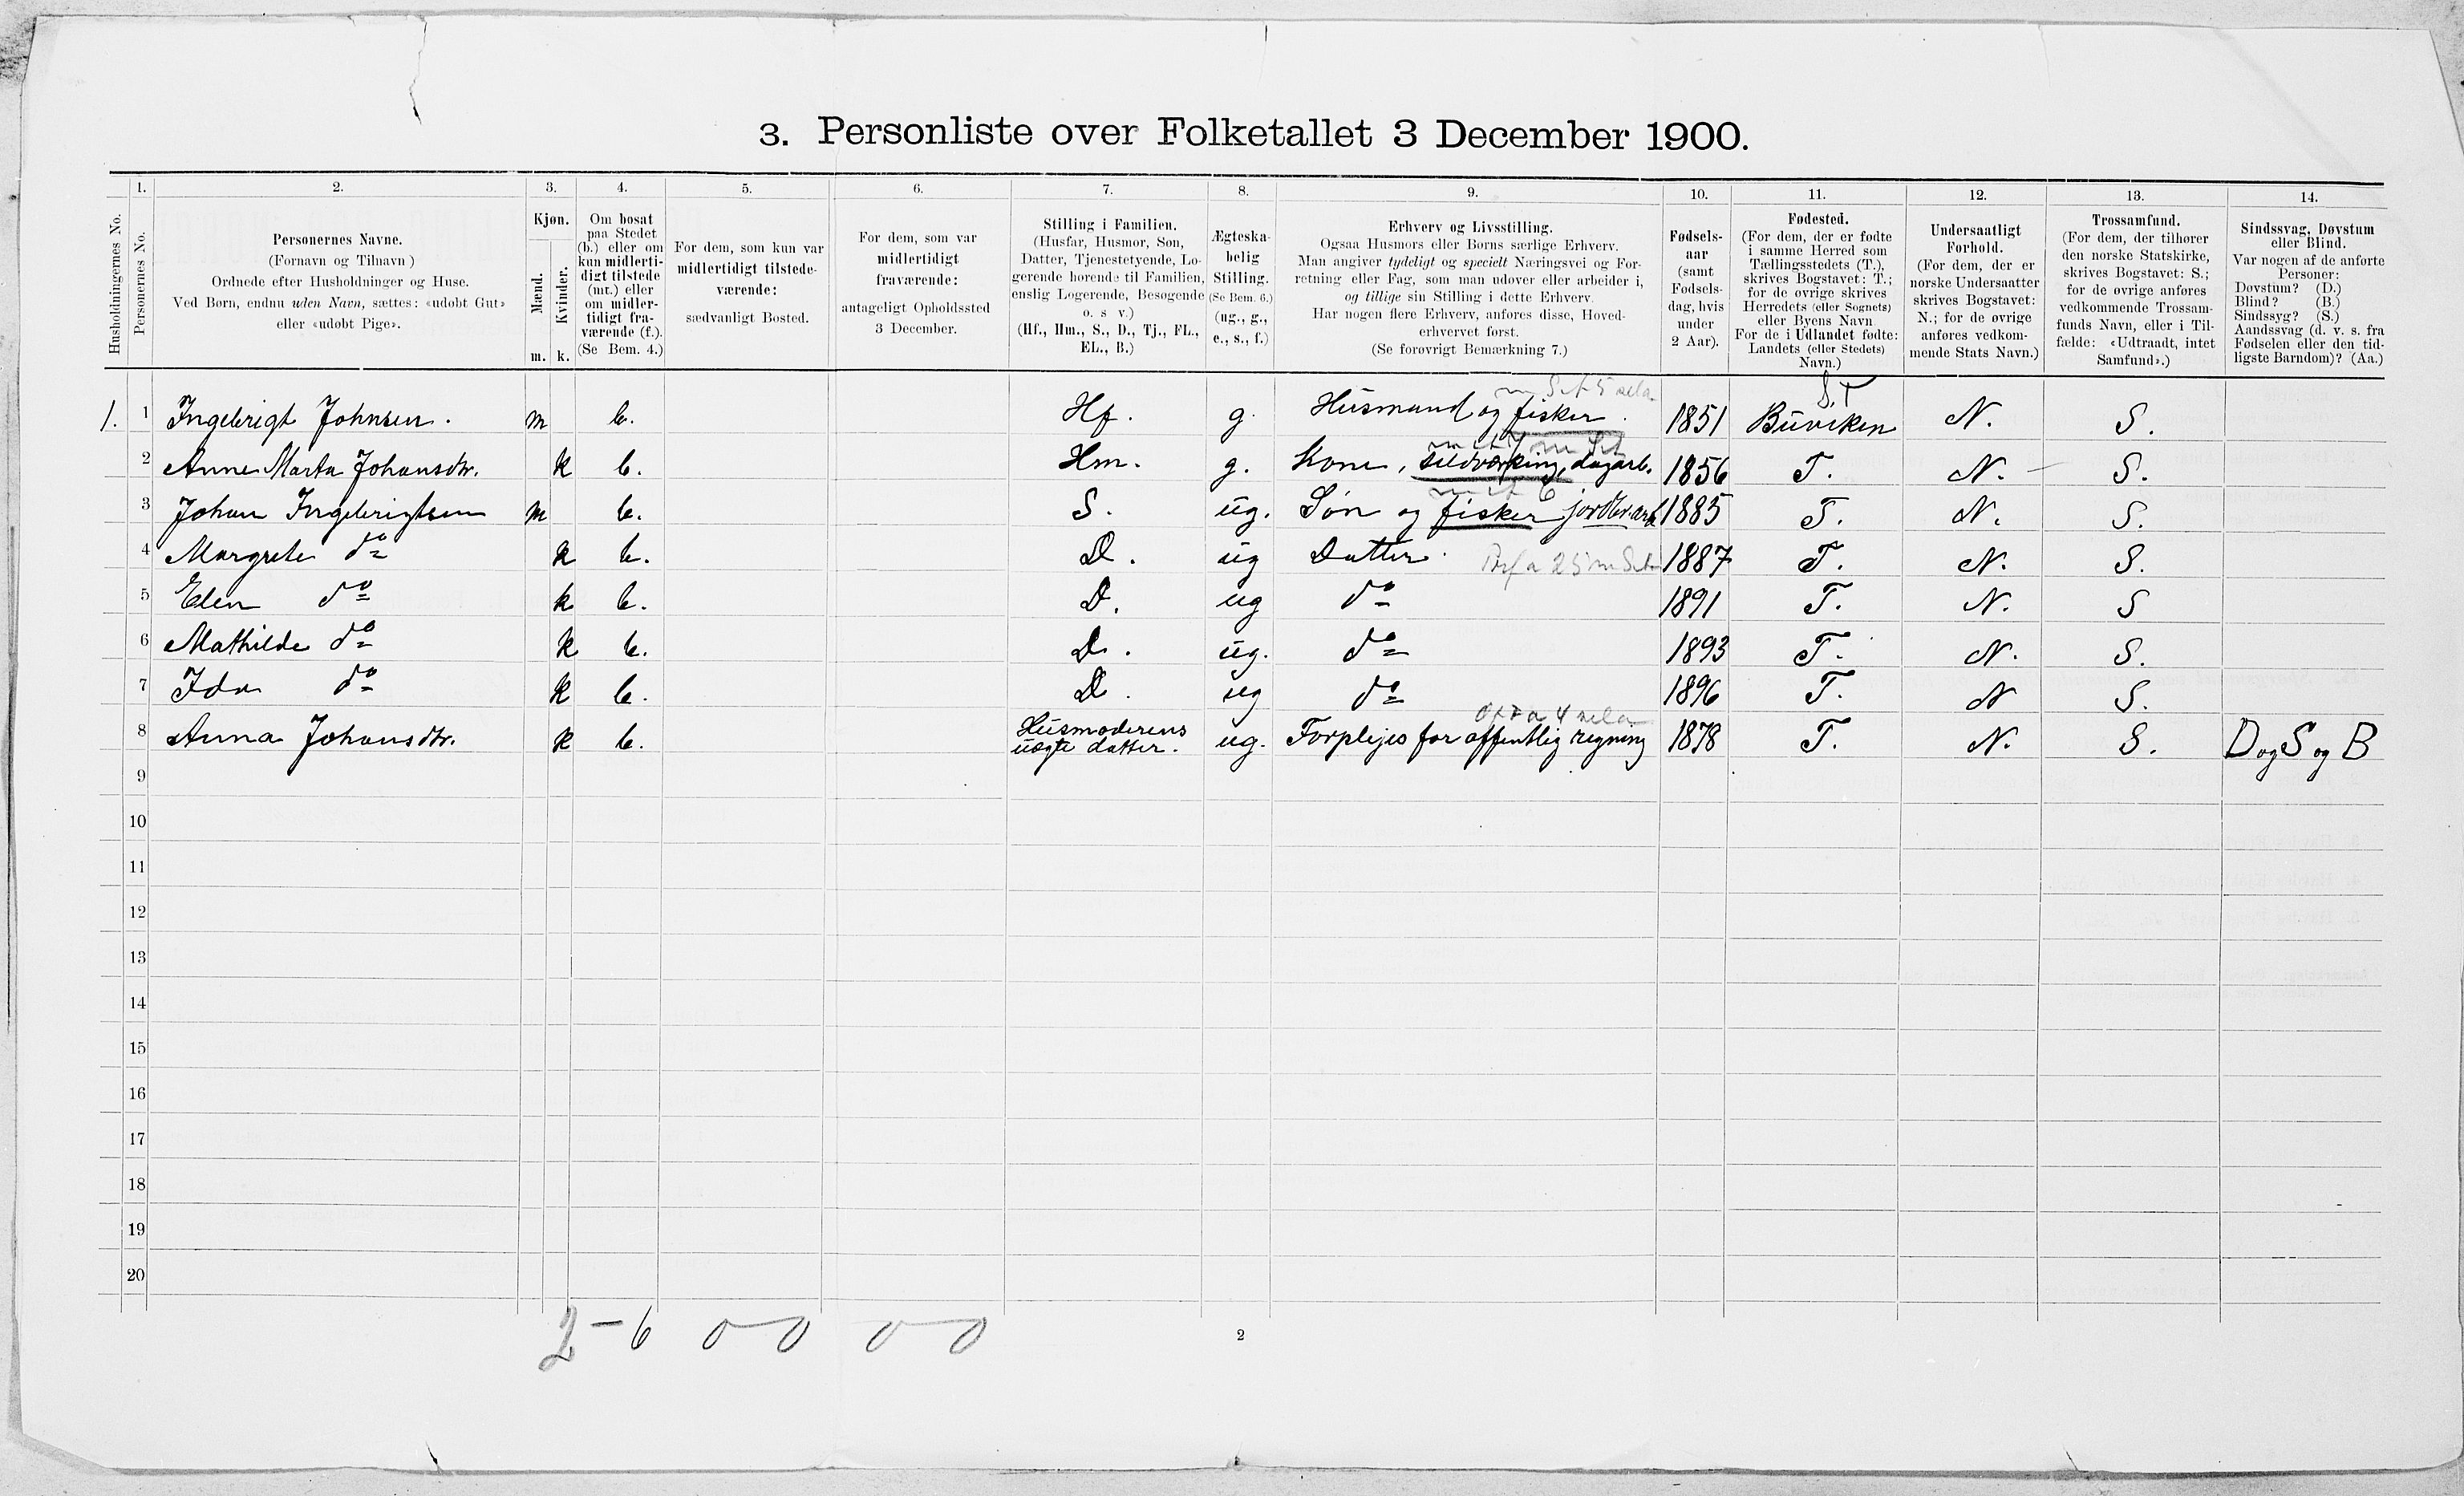 3. Personliste over Folketallet 3 December 1900.
Husholdningernes No.
1. Personernes No.
2. Personernes Navne.
(Fornavn og Tilnavn)
Ordnede efter Husholdninger og Huse.
Ved Børn, endnu uden Navn, sættes: «udøbt Gut»
eller «udøbt Pige».
3. Kjøn.
Mænd. m.
Kvinder. k.
4. Om bosat
paa Stedet
(b.) eller om
kun midlerti-
digt tilstede
(mt.) eller
om midler-
tidigt fra-
værende (f.).
(Se Bem. 4.)
5. For dem, som kun var
midlertidigt tilstede-
værende:
sædvanligt Bosted.
6. For dem, som var
midlertidigt
fraværende:
antageligt Opholdssted
3 December.
7. Stilling i Familien.
(Husfar, Husmor, Søn,
Datter, Tjenestetyende, Lo-
gerende hørende til Familien,
enslig Logerende, Besøgende
o. s v.)
(Hf., Hm., S., D., Tj., FL.,
EL., B.)
8. Ægteska-
belig
Stilling.
(Se Bem. 6.)
(ug., g.,
e., s., f.)
9. Erhverv og Livsstilling.
Ogsaa Husmors eller Børns særlige Erhverv.
Man angiver tydeligt og specielt Næringsvei og For-
retning eller Fag, som man udøver eller arbeider i,
og tillige sin Stilling i dette Erhverv.
Har nogen flere Erhverv, anføres disse, Hoved-
erhvervet først.
(Se forøvrigt Bemærkning 7.)
10. Fødsels-
aar
(samt
Fødsels-
dag, hvis
under
2 Aar).
11. Fødested.
(For dem, der er fødte
i samme Herred som
Tællingsstedets (T.),
skrives Bogstavet: T.;
for de øvrige skrives
Herredets (eller Sognets)
eller Byens Navn
For de i Udlandet fødte:
Landets (eller Stedets)
Navn.)
12. Undersaatligt
Forhold.
(For dem, der er
norske Undersaatter
skrives Bogstavet:
N.; for de øvrige
anføres vedkom-
mende Stats Navn.)
13. Trossamfund.
(For dem, der tilhører
den norske Statskirke,
skrives Bogstavet: S.;
for de øvrige anføres
vedkommende Trossam-
funds Navn, eller i Til-
fælde: «Udtraadt, intet
Samfund».)
14. Sindssvag, Døvstum
eller Blind.
Var nogen af de anførte
Personer:
Døvstum? (D.)
Blind? (B.)
Sindssyg? (S.)
Aandssvag (d. v. s. fra
Fødselen eller den tid-
ligste Barndom)? (Aa.)
S.T
1. 1 Ingebrigt Johnsen. m b. Hf. g. Husmand og fisker. 1851 Buviken N. S.
2 Anne Marta Johansdtr. k b. Hm. g. Kone, sildvirking, dagarb. 1856 T. N. S.
3 Johan Ingebrigtsen m b. S. ug. Søn og fisker jordbr.arb 1885 T. N. S.
4 Margrete do k b. D. ug Datter. 1887 T. N. S.
5 Elen do k b. D. ug do 1891 T. N. S
6 Mathilde do k b. D. ug. do 1893 T. N. S.
7 Ida do k b. D. ug do 1896 T. N S.
8 Anna Johansdtr. k b. Husmoderens
uægte datter. ug. Forplejes for offentlig regning 1878 T. N. S. D og S og B
9
10
11
12
13
14
15
16
17
18
19
20
2-6 0 0 0 0
2